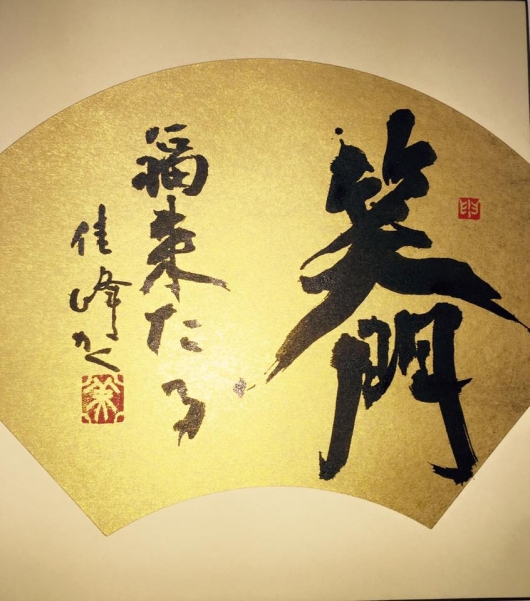 笑門
福来たる
佳峰